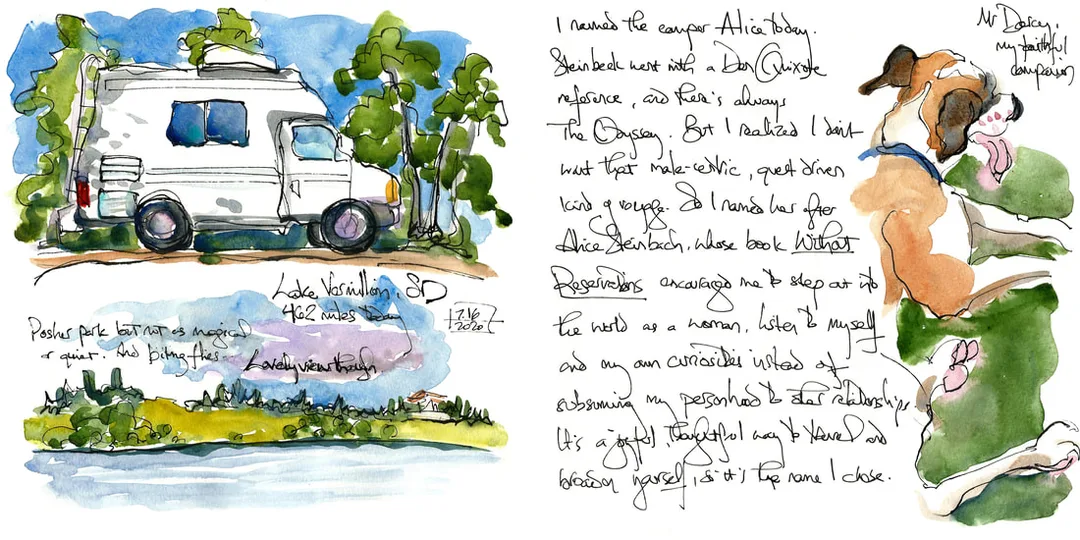 Lake Vermillion, SD
462 miles today
7.16
2020
Posher park but not as magical
or quiet. And biting flies.
Lovely view though
I named the camper Alice today.
Steinbeck went with a Don Quixote
reference, and there's always
The Odyssey. But I realized I didn't
want that male-centric, quest driven
kind of voyage. So I named her after
Alice Steinbach, whose book Without
Reservations encouraged me to step out into
the world as a woman, listen to myself
and my own curiosities instead of
subsuming my personhood to relationships.
It's a joyful, thoughtful way to travel and
broaden yourself, so it's the name I chose.
Mr Darcy,
my faithful
companion